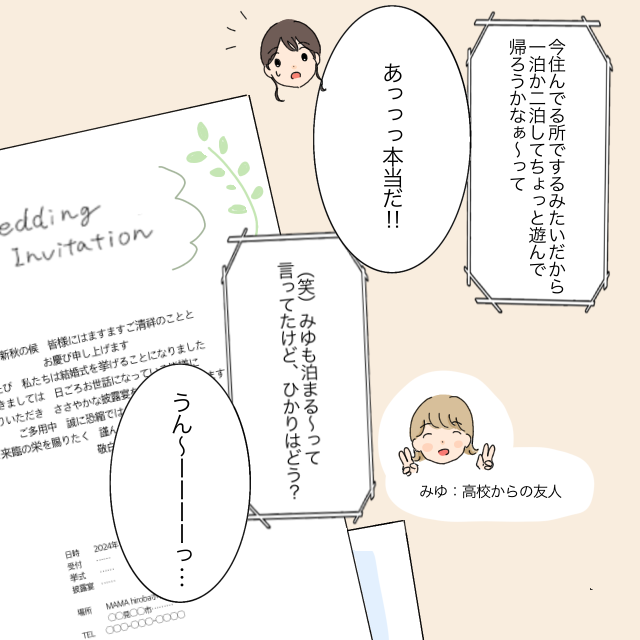 今住んでる所でするみたいだから
一泊か二泊してちょっと遊んで
帰ろうかなぁ～って
あっっっ本当だ!!
(笑)みゆも泊まる～って
言ってたけど、ひかりはどう？
うん～ーーーーっ…
みゆ：高校からの友人
edding
Invitation
新秋の候 皆様にはますますご清祥のことと
お慶び申し上げます
たび 私たちは結婚式を挙げることになりました
きましては 日ごろお世話になっている
りいただき ささやかな披露宴
ご多用中 誠に恐縮では
来臨の栄を賜りたく 謹ん
敬
日時 2024年
受付 ……
挙式 ……
披露宴 ……
場所 MAMA hiroba
〇〇県〇〇市………
TEL 〇〇〇-〇〇〇-〇〇〇〇